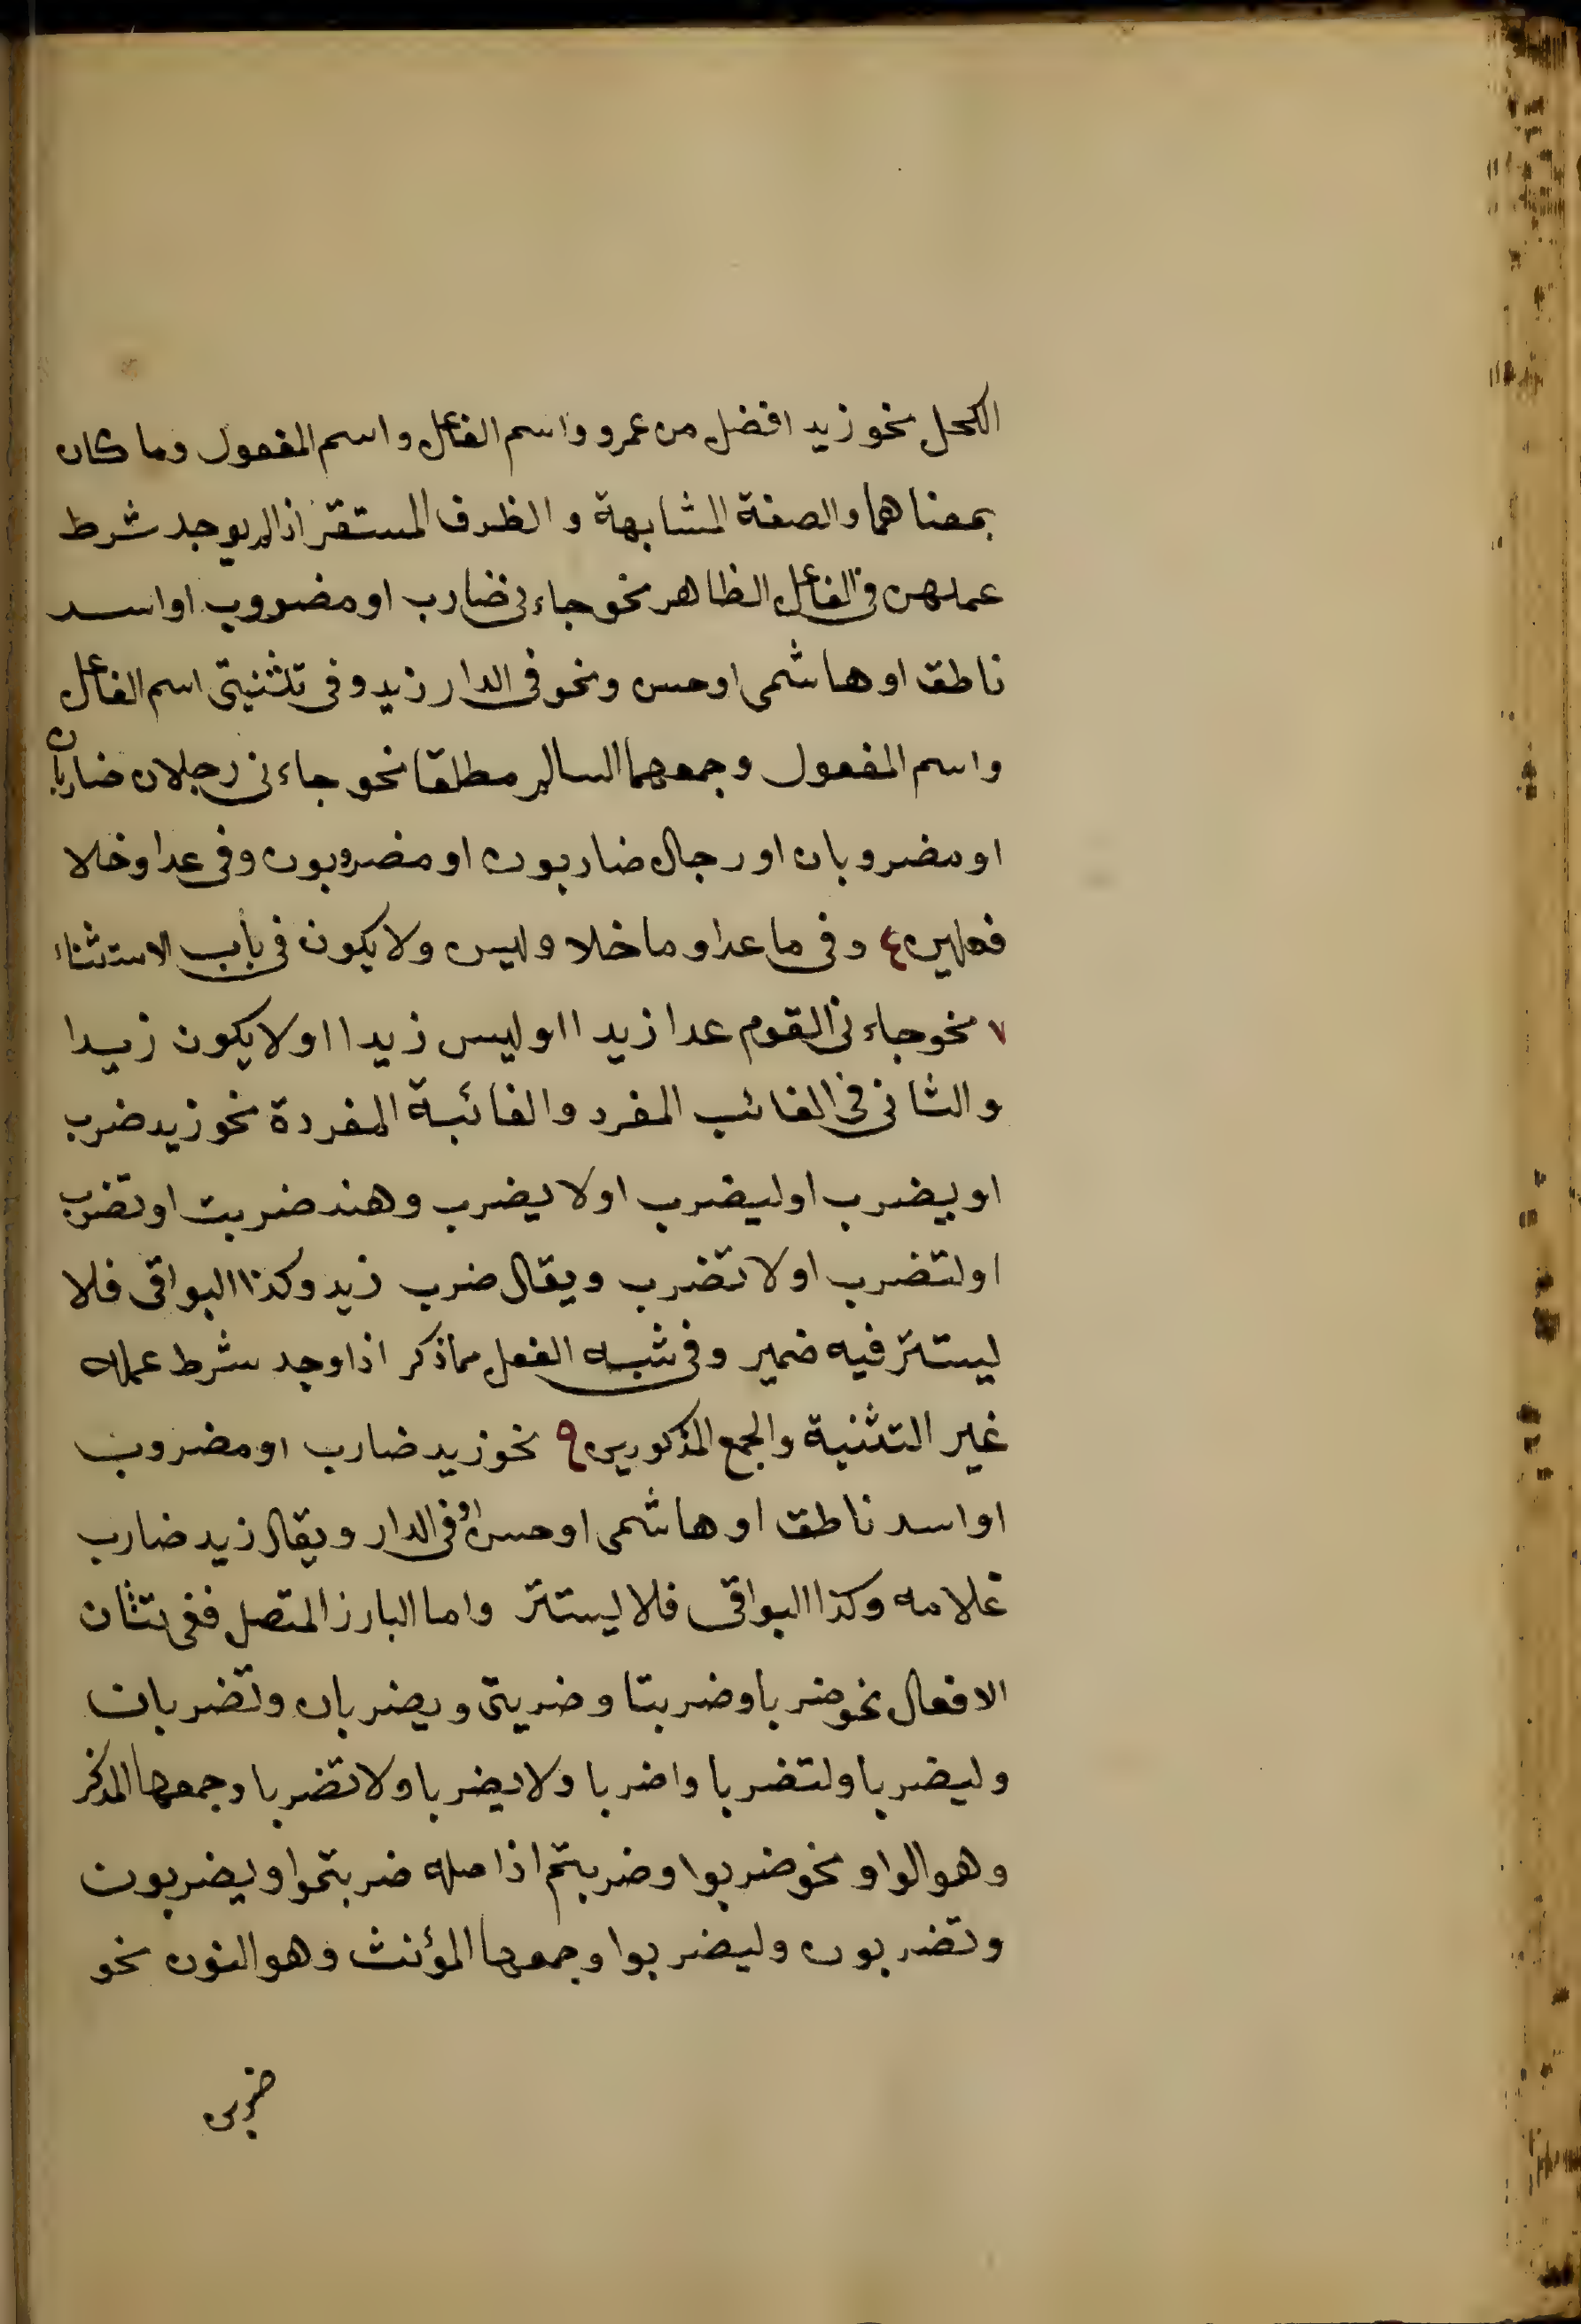 الكحل نحو زيد افضل من عمرو واسم الفاعل واسم المفعول وما كان
بمعناهما والصفة المشابهة و الظرف المستقر اذا لم يوجد شرط
عملهن فى الفاعل الظاهر نحو جاءنى ضارب او مضروب او اسد
ناطق او هاشمى او حسن ونحو فى الدار زيد وفى تثنيتى اسم الفاعل
واسم المفعول وجمعهما السالم مطلقا نحو جاءنى رجلان ضاربان
او مضروبان او رجال ضاربون او مضروبون وفى عدا وخلا
فعلين ٤ وفى ما عدا وما خلا وليس ولا يكون فى باب الاستثناء
٧ نحو جاءنى القوم عدا زيدا او ليس زيدا او لا يكون زيدا
والثانى فى الغائب المفرد والغائبة المفردة نحو زيد ضرب
او يضرب او ليضرب او لا يضرب وهند ضربت او تضرب
او لتضرب او لا تضرب ويقال ضرب زيد وكذا البواقى فلا
يستتر فيه ضمير وفى شبه الفعل مما ذكر اذا وجد شرط عمله
غير التثنية والجمع المذكورين ٩ نحو زيد ضارب او مضروب
او اسد ناطق او هاشمى او حسن او فى الدار ويقال زيد ضارب
غلامه وكذا البواقى فلا يستتر واما البارز المتصل ففى تثان
الافعال نحو ضربا وضربتا وضربتى ويضربان وتضربان
وليضربا ولتضربا واضربا ولا يضربا ولا تضربا وجمعها المذكر
وهو الواو نحو ضربوا وضربتم اذ اصله ضربتموا ويضربون
وتضربون وليضربوا وجمعها المؤنث وهو النون نحو
ضربن